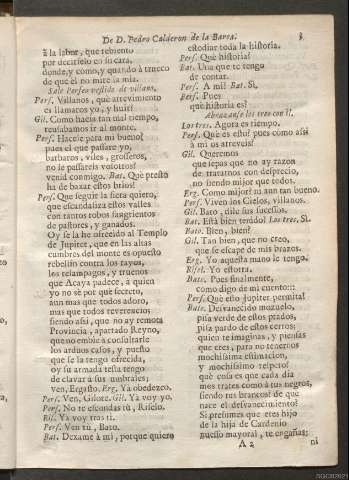 De D. Pedro Calderon de la Barca. 3
à la labor, que rebiento
por decirselo en su cara,
donde, y como, y quando à trueco
de que el no mire la mia.
Sale Perseo vestido de villano.
Pers. Villanos, què atrevimiento
es llamaros yo, y huir?
Gil. Como hacia tan mal tiempo,
reusabamos ir al monte.
Pers. Haceis para mi bueno!
pues el que passare yo,
barbaros, viles, groseros,
no le passareis vosotros?
venid conmigo. Bat. Què presto
ha de baxar estos brios!
Pers. Que seguir la fiera quiero,
que escandaliza estos valles
con tantos robos sangrientos
de pastores, y ganados.
Oy se la he ofrecido al Templo
de Jupiter, que en las altas
cumbres del monte es opuesto
rebellin contra los rayos,
los relampagos, y truenos
que Acaya padece; a quien
yo no sè por què secreto,
aun mas que todos adoro,
mas que todos reverencio;
siendo assi, que no ay remota
Provincia, apartado Reyno,
que no embie à consultarle
los arduos casos, y puesto
que se la tengo ofrecida,
oy su armada testa tengo
de clavar à sus umbrales;
ven, Ergasto. Erg. Ya obedezco.
Pers. Ven, Gilote. Gil. Ya voy yo.
Pers. No te escondas tù, Riselo.
Ris. Ya voy tras ti.
Pers. Ven tù, Bato.
Bat. Dexame à mi, porque quiero
estudiar toda la historia.
Pers. Què historia?
Bat. Una que te tengo
de contar.
Pers. A mi? Bat. Si.
Pers. Pues
què historia es?
Abrazanse los tres con èl.
Los tres. Agora es tiempo.
Pers. Què es esto? pues como assi
à mi os atreveis?
Gil. Queremos
que sepas que no ay razon
de tratarnos con desprecio,
no siendo mijor que todos.
Erg. Como mijor? ni aun tan bueno.
Pers. Viven los Cielos, villanos.
Gil. Bato, dile sus sucessos.
Bat. Està bien tenido? Los tres. Si.
Bato. Bien, bien?
Gil. Tan bien, que no creo,
que se escape de mis brazos.
Erg. Yo aquesta mano le tengo.
Risel. Yo estotra.
Bato. Pues finalmente,
como digo de mi cuento::
Pers. Què esto Jupiter permita!
Bato. Desvanecido mozuelo,
pisa verde de estos prados,
pisa pardo de estos cerros;
quien te imaginas, y piensas
que eres, para no tenernos
mochissima estimacion,
y mochissimo respeto?
què cosa es que cada dia
mos trates como à tus negros,
siendo tus brancos? de que
nace el desvanecimiento?
Si presumes que eres hijo
de la hija de Cardenio
nuesso mayoral, te engañas;
A 2 ni